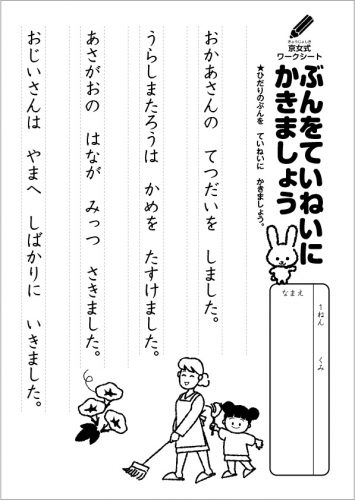 きょうじょしき
京女式
ワークシート
ぶんをていねいに
かきましょう
★ひだりのぶんを　ていねいに　かきましょう。
なまえ
1ねん　くみ
おかあさんの　てつだいを　しました。
うらしまたろうは　かめを　たすけました。
あさがおの　はなが　みっつ　さきました。
おじいさんは　やまへ　しばかりに　いきました。